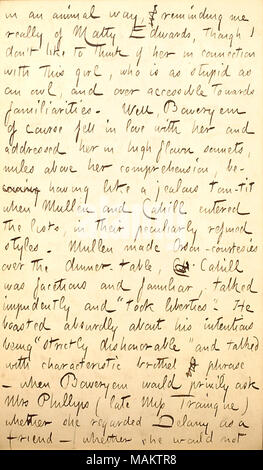 in an animal way, & reminding me
really of Matty Edwards, though I
don't like to think of her in connection
with this girl, who is as stupid as
an owl, and over accessible towards
familiarities. Well, Boweryem
of course fell in love with her and
addressed her in high flown sonnets,
miles above her comprehension, be-
having like a jealous tom-tit
when Mullen and Cahill entered
the lists, in their peculiarly refined
styles. Mullen made Orson-courtesies
over the dinner table, Cahill
was facetious and familiar, talked
impudently and "took liberties". He
boasted absurdly about his intentions
being "strictly dishonorable" and talked
with characteristic brothel phrase
— when Boweryem would primly ask
Mrs Phillips (late Miss Trainque)
whether she regarded Delany as a
friend — whether she would not
alamy
MAKTR8
www.alamy.com